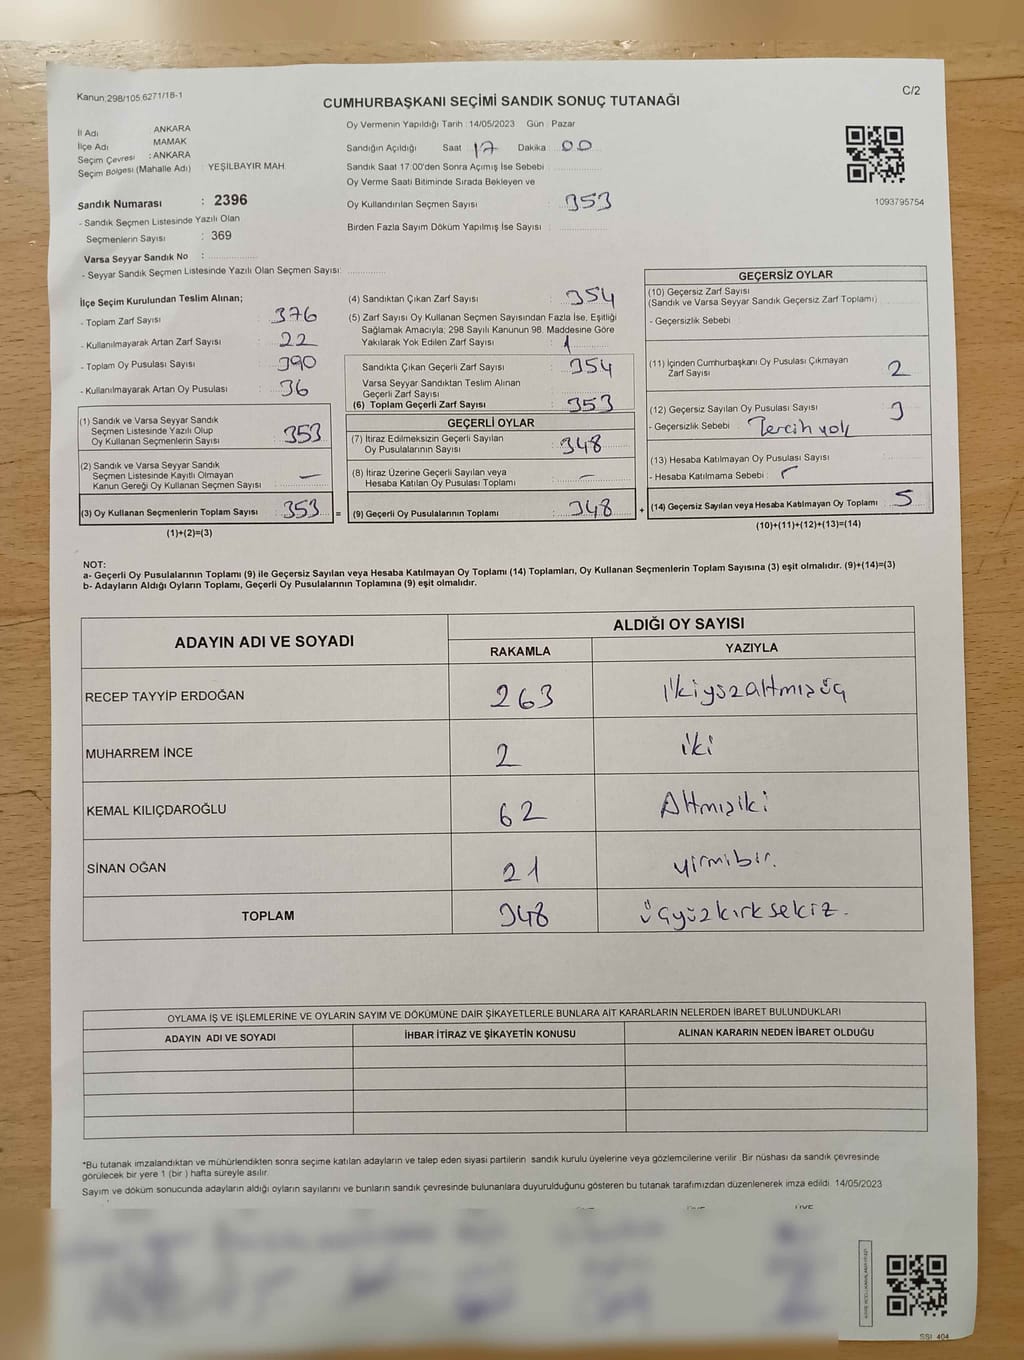 Kanun,298/105,6271/18-1
C/2
CUMHURBAŞKANI SEÇİMİ SANDIK SONUÇ TUTANAĞI
İl Adı ANKARA
İlçe Adı MAMAK
Seçim Çevresi : ANKARA
Seçim Bölgesi (Mahalle Adı) : YEŞİLBAYIR MAH.
Oy Vermenin Yapıldığı Tarih : 14/05/2023 Gün : Pazar
Sandığın Açıldığı Saat 17 Dakika : 00
Sandık Saat 17:00'den Sonra Açımış İse Sebebi :
Oy Verme Saati Bitiminde Sırada Bekleyen ve
Oy Kullandırılan Seçmen Sayısı : 353
Birden Fazla Sayım Döküm Yapılmış İse Sayısı :
1093795754
Sandık Numarası : 2396
- Sandık Seçmen Listesinde Yazılı Olan
Seçmenlerin Sayısı : 369
Varsa Seyyar Sandık No :
- Seyyar Sandık Seçmen Listesinde Yazılı Olan Seçmen Sayısı:
İlçe Seçim Kurulundan Teslim Alınan;
- Toplam Zarf Sayısı : 376
- Kullanılmayarak Artan Zarf Sayısı : 22
- Toplam Oy Pusulası Sayısı : 390
- Kullanılmayarak Artan Oy Pusulası : 36
(1) Sandık ve Varsa Seyyar Sandık
Seçmen Listesinde Yazılı Olup
Oy Kullanan Seçmenlerin Sayısı : 353
(2) Sandık ve Varsa Seyyar Sandık
Seçmen Listesinde Kayıtlı Olmayan
Kanun Gereği Oy Kullanan Seçmen Sayısı : —
(3) Oy Kullanan Seçmenlerin Toplam Sayısı : 353 =
(1)+(2)=(3)
(4) Sandıktan Çıkan Zarf Sayısı : 354
(5) Zarf Sayısı Oy Kullanan Seçmen Sayısından Fazla İse, Eşitliği
Sağlamak Amacıyla; 298 Sayılı Kanunun 98. Maddesine Göre
Yakılarak Yok Edilen Zarf Sayısı : 1
Sandıkta Çıkan Geçerli Zarf Sayısı : 354
Varsa Seyyar Sandıktan Teslim Alınan
Geçerli Zarf Sayısı :
(6) Toplam Geçerli Zarf Sayısı : 353
GEÇERLİ OYLAR
(7) İtiraz Edilmeksizin Geçerli Sayılan
Oy Pusulalarının Sayısı : 348
(8) İtiraz Üzerine Geçerli Sayılan veya
Hesaba Katılan Oy Pusulası Toplamı : —
(9) Geçerli Oy Pusulalarının Toplamı : 348 +
GEÇERSİZ OYLAR
(10) Geçersiz Zarf Sayısı
(Sandık ve Varsa Seyyar Sandık Geçersiz Zarf Toplamı)
- Geçersizlik Sebebi :
(11) İçinden Cumhurbaşkanı Oy Pusulası Çıkmayan
Zarf Sayısı 2
(12) Geçersiz Sayılan Oy Pusulası Sayısı 3
- Geçersizlik Sebebi : Tercih yok
(13) Hesaba Katılmayan Oy Pusulası Sayısı
- Hesaba Katılmama Sebebi :
(14) Geçersiz Sayılan veya Hesaba Katılmayan Oy Toplamı : 5
(10)+(11)+(12)+(13)=(14)
NOT:
a- Geçerli Oy Pusulalarının Toplamı (9) ile Geçersiz Sayılan veya Hesaba Katılmayan Oy Toplamı (14) Toplamları, Oy Kullanan Seçmenlerin Toplam Sayısına (3) eşit olmalıdır. (9)+(14)=(3)
b- Adayların Aldığı Oyların Toplamı, Geçerli Oy Pusulalarının Toplamına (9) eşit olmalıdır.
ADAYIN ADI VE SOYADI ALDIĞI OY SAYISI
RAKAMLA YAZIYLA
RECEP TAYYİP ERDOĞAN 263 ikiyüzaltmışüç
MUHARREM İNCE 2 iki
KEMAL KILIÇDAROĞLU 62 Altmışiki
SİNAN OĞAN 21 yirmibir.
TOPLAM 348 üçyüzkırksekiz.
OYLAMA İŞ VE İŞLEMLERİNE VE OYLARIN SAYIM VE DÖKÜMÜNE DAİR ŞİKAYETLERLE BUNLARA AİT KARARLARIN NELERDEN İBARET BULUNDUKLARI
ADAYIN ADI VE SOYADI İHBAR İTİRAZ VE ŞİKAYETİN KONUSU ALINAN KARARIN NEDEN İBARET OLDUĞU
*Bu tutanak imzalandıktan ve mühürlendikten sonra seçime katılan adayların ve talep eden siyasi partilerin sandık kurulu üyelerine veya gözlemcilerine verilir. Bir nüshası da sandık çevresinde
görülecek bir yere 1 (bir ) hafta süreyle asılır.
Sayım ve döküm sonucunda adayların aldığı oyların sayılarını ve bunların sandık çevresinde bulunanlara duyurulduğunu gösteren bu tutanak tarafımızdan düzenlenerek imza edildi. 14/05/2023
SSI 404